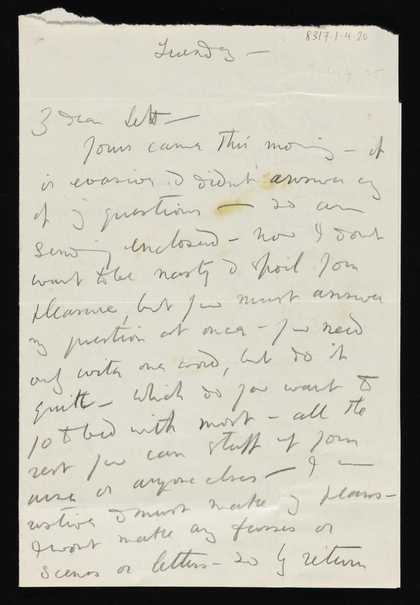 8317.1.4.20
Tuesday —
dear
Yours came this morning — it
is evasive & didn't answer any
of my questions — so am
sending enclosed — now I dont
want to be nasty & spoil your
pleasure, but you must answer
my question at once — you need
only write one word, but do it
quick — which do you want to
go to bed with most — all the
rest you can stuff up your
arse or anyone elses — I
& must make my plans —
I wont make any fusses or
scenes or letters — so by return